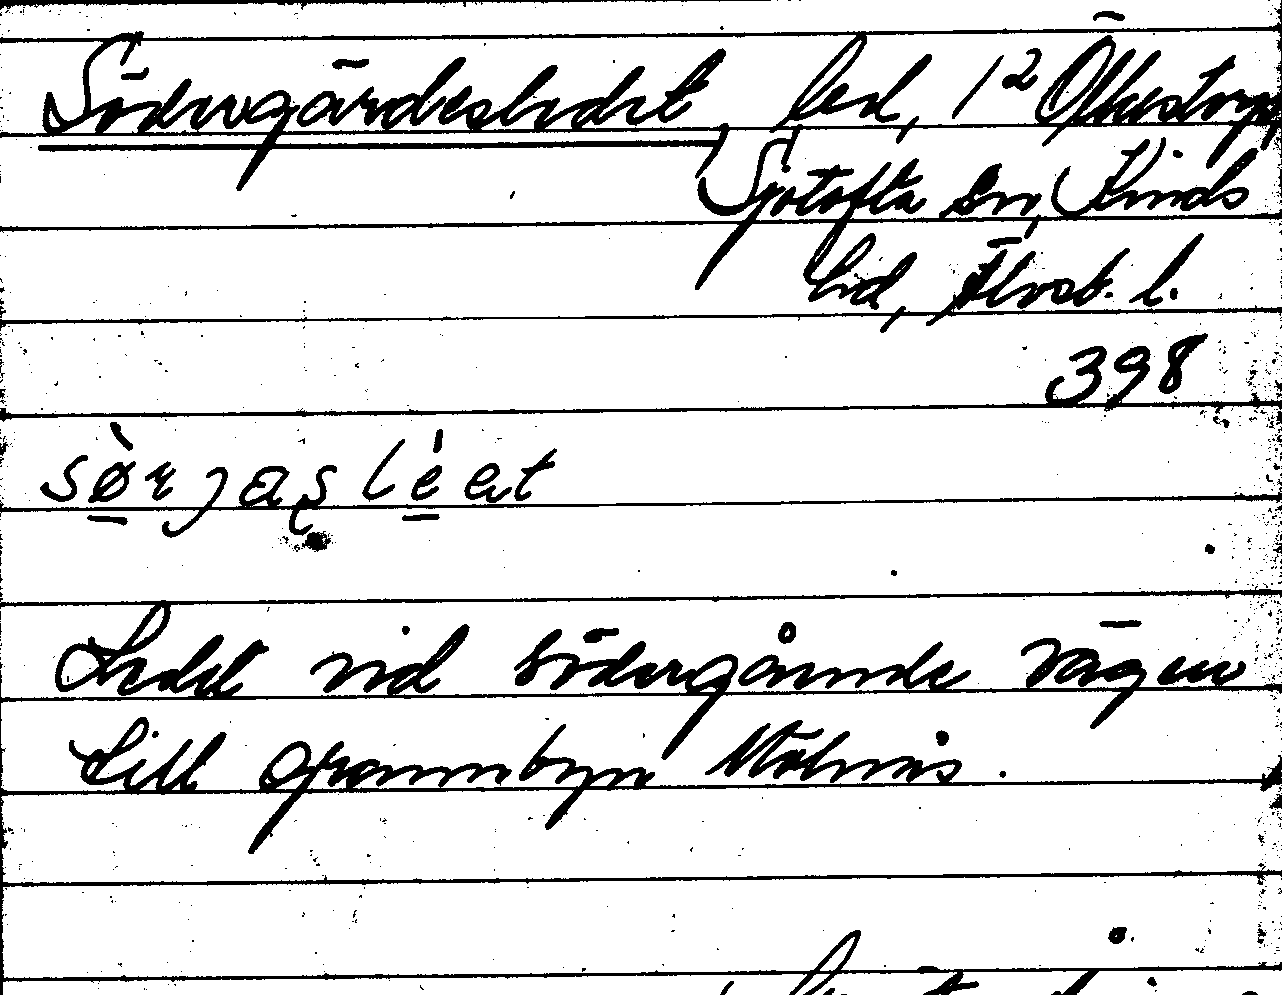 Södergärdesledet, led, 1² Ölkestorp,
Sjötofta sn, Kinds
hd, Älvsb. l.
398
sørjasléet
Ledet vid södergående vägen
till grannbyn